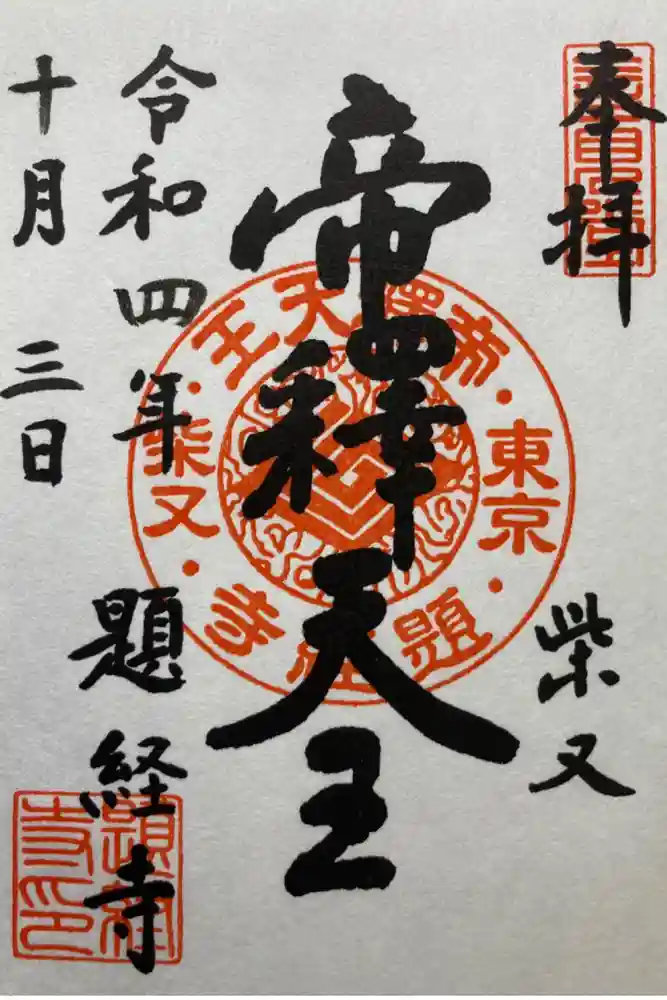 奉拝
柴又
帝釋天王
令和四年
十月三日
題経寺
帝釋天王
東京
題経寺
柴又
題経寺印